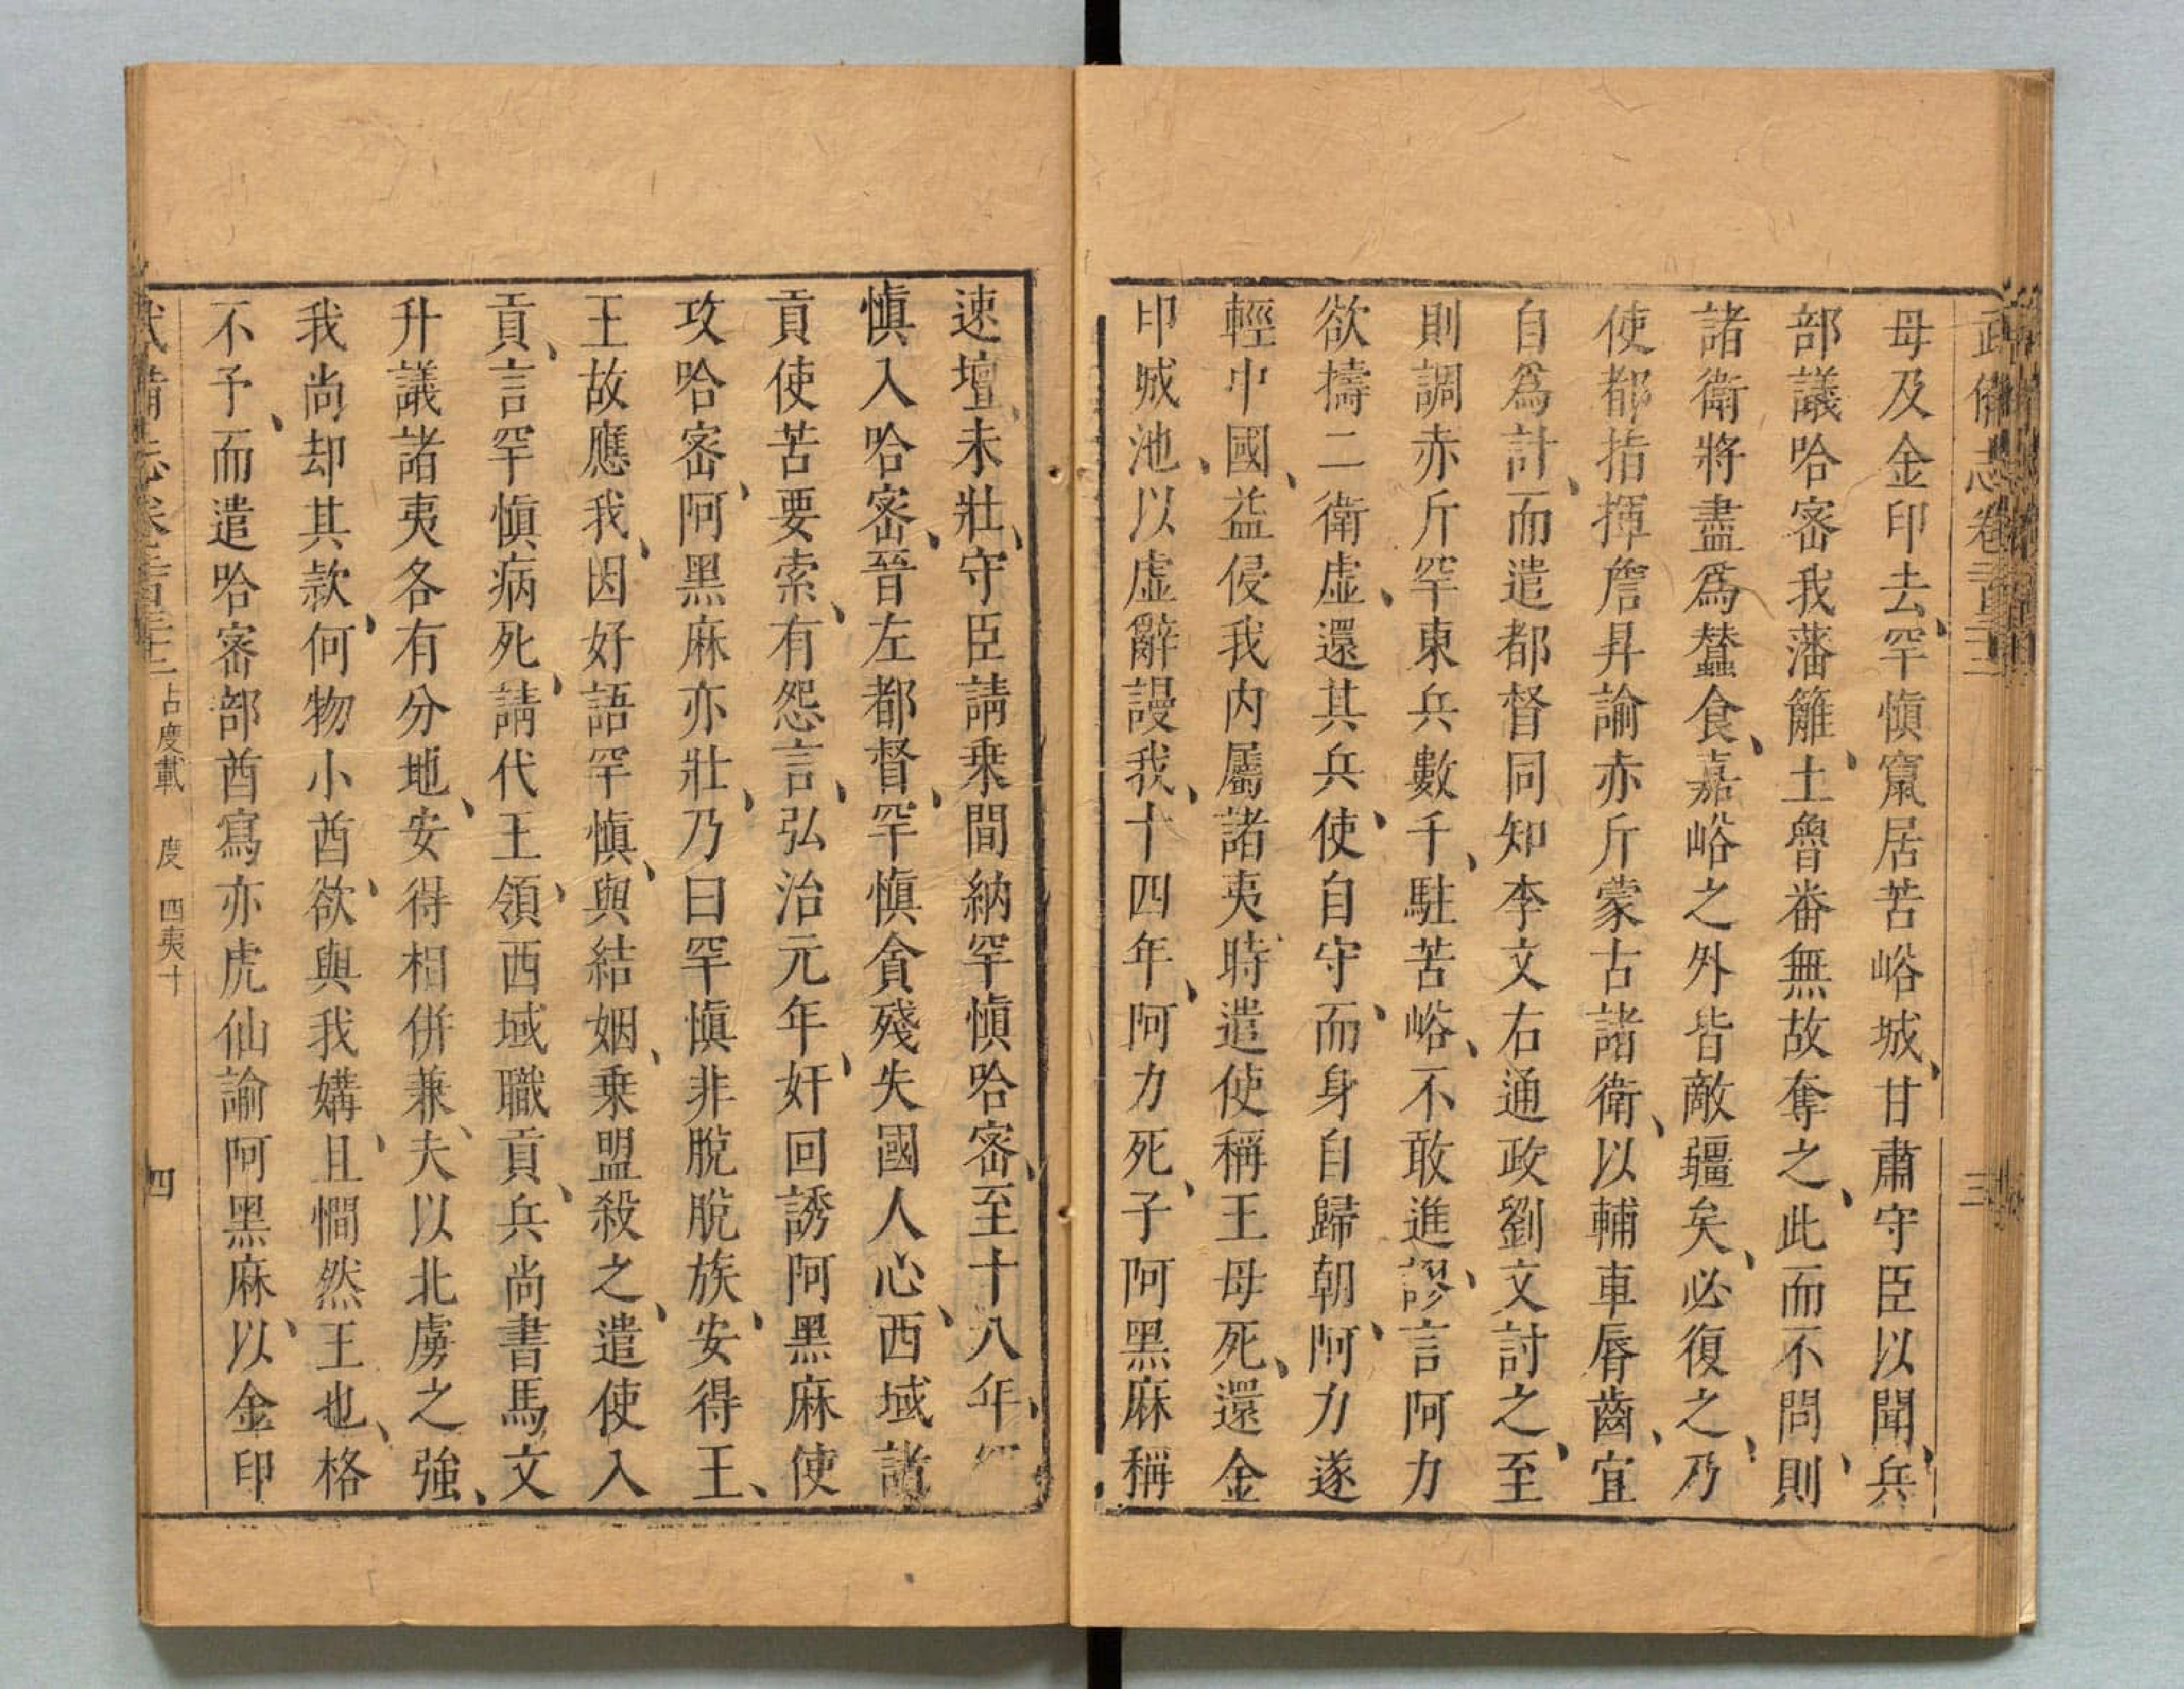 武備志卷二百三十二
三
母及金印去、罕慎竄居苦峪城、甘肅守臣以聞、兵
部議哈密我藩籬、土魯番無故奪之、此而不問、則
諸衛將盡爲蠶食、嘉峪之外皆敵疆矣、必復之、乃
使都指揮詹昇諭赤斤蒙古諸衛、以輔車唇齒、宜
自爲計、而遣都督同知李文右通政劉文討之、至
則調赤斤罕東兵數千、駐苦峪、不敢進、謬言阿力
欲擣二衛虛、還其兵、使自守、而身自歸朝、阿力遂
輕中國、益侵我内屬諸夷、時遣使稱王母死、還金
印城池、以虛辭謾我、十四年、阿力死、子阿黑麻稱
速壇、未壯、守臣請乗間納罕慎哈密、至十八年、罕
慎入哈密、晉左都督、罕慎貪殘失國人心、西域諸
貢使苦要索、有怨言、弘治元年、奸回誘阿黑麻使
攻哈密、阿黑麻亦壯、乃曰罕慎非脫脫族、安得王、
王故應我、因好語罕慎、與結姻、乗盟殺之、遣使入
貢、言罕慎病死、請代王、領西域職貢、兵尚書馬文
升議諸夷各有分地、安得相併兼、夫以北虜之強、
我尚却其款、何物小酋、欲與我媾、且憪然王也、格
不予、而遣哈密部酋寫亦虎仙諭阿黑麻、以金印
武備志卷二百三十二 占度載 度 四夷十
四